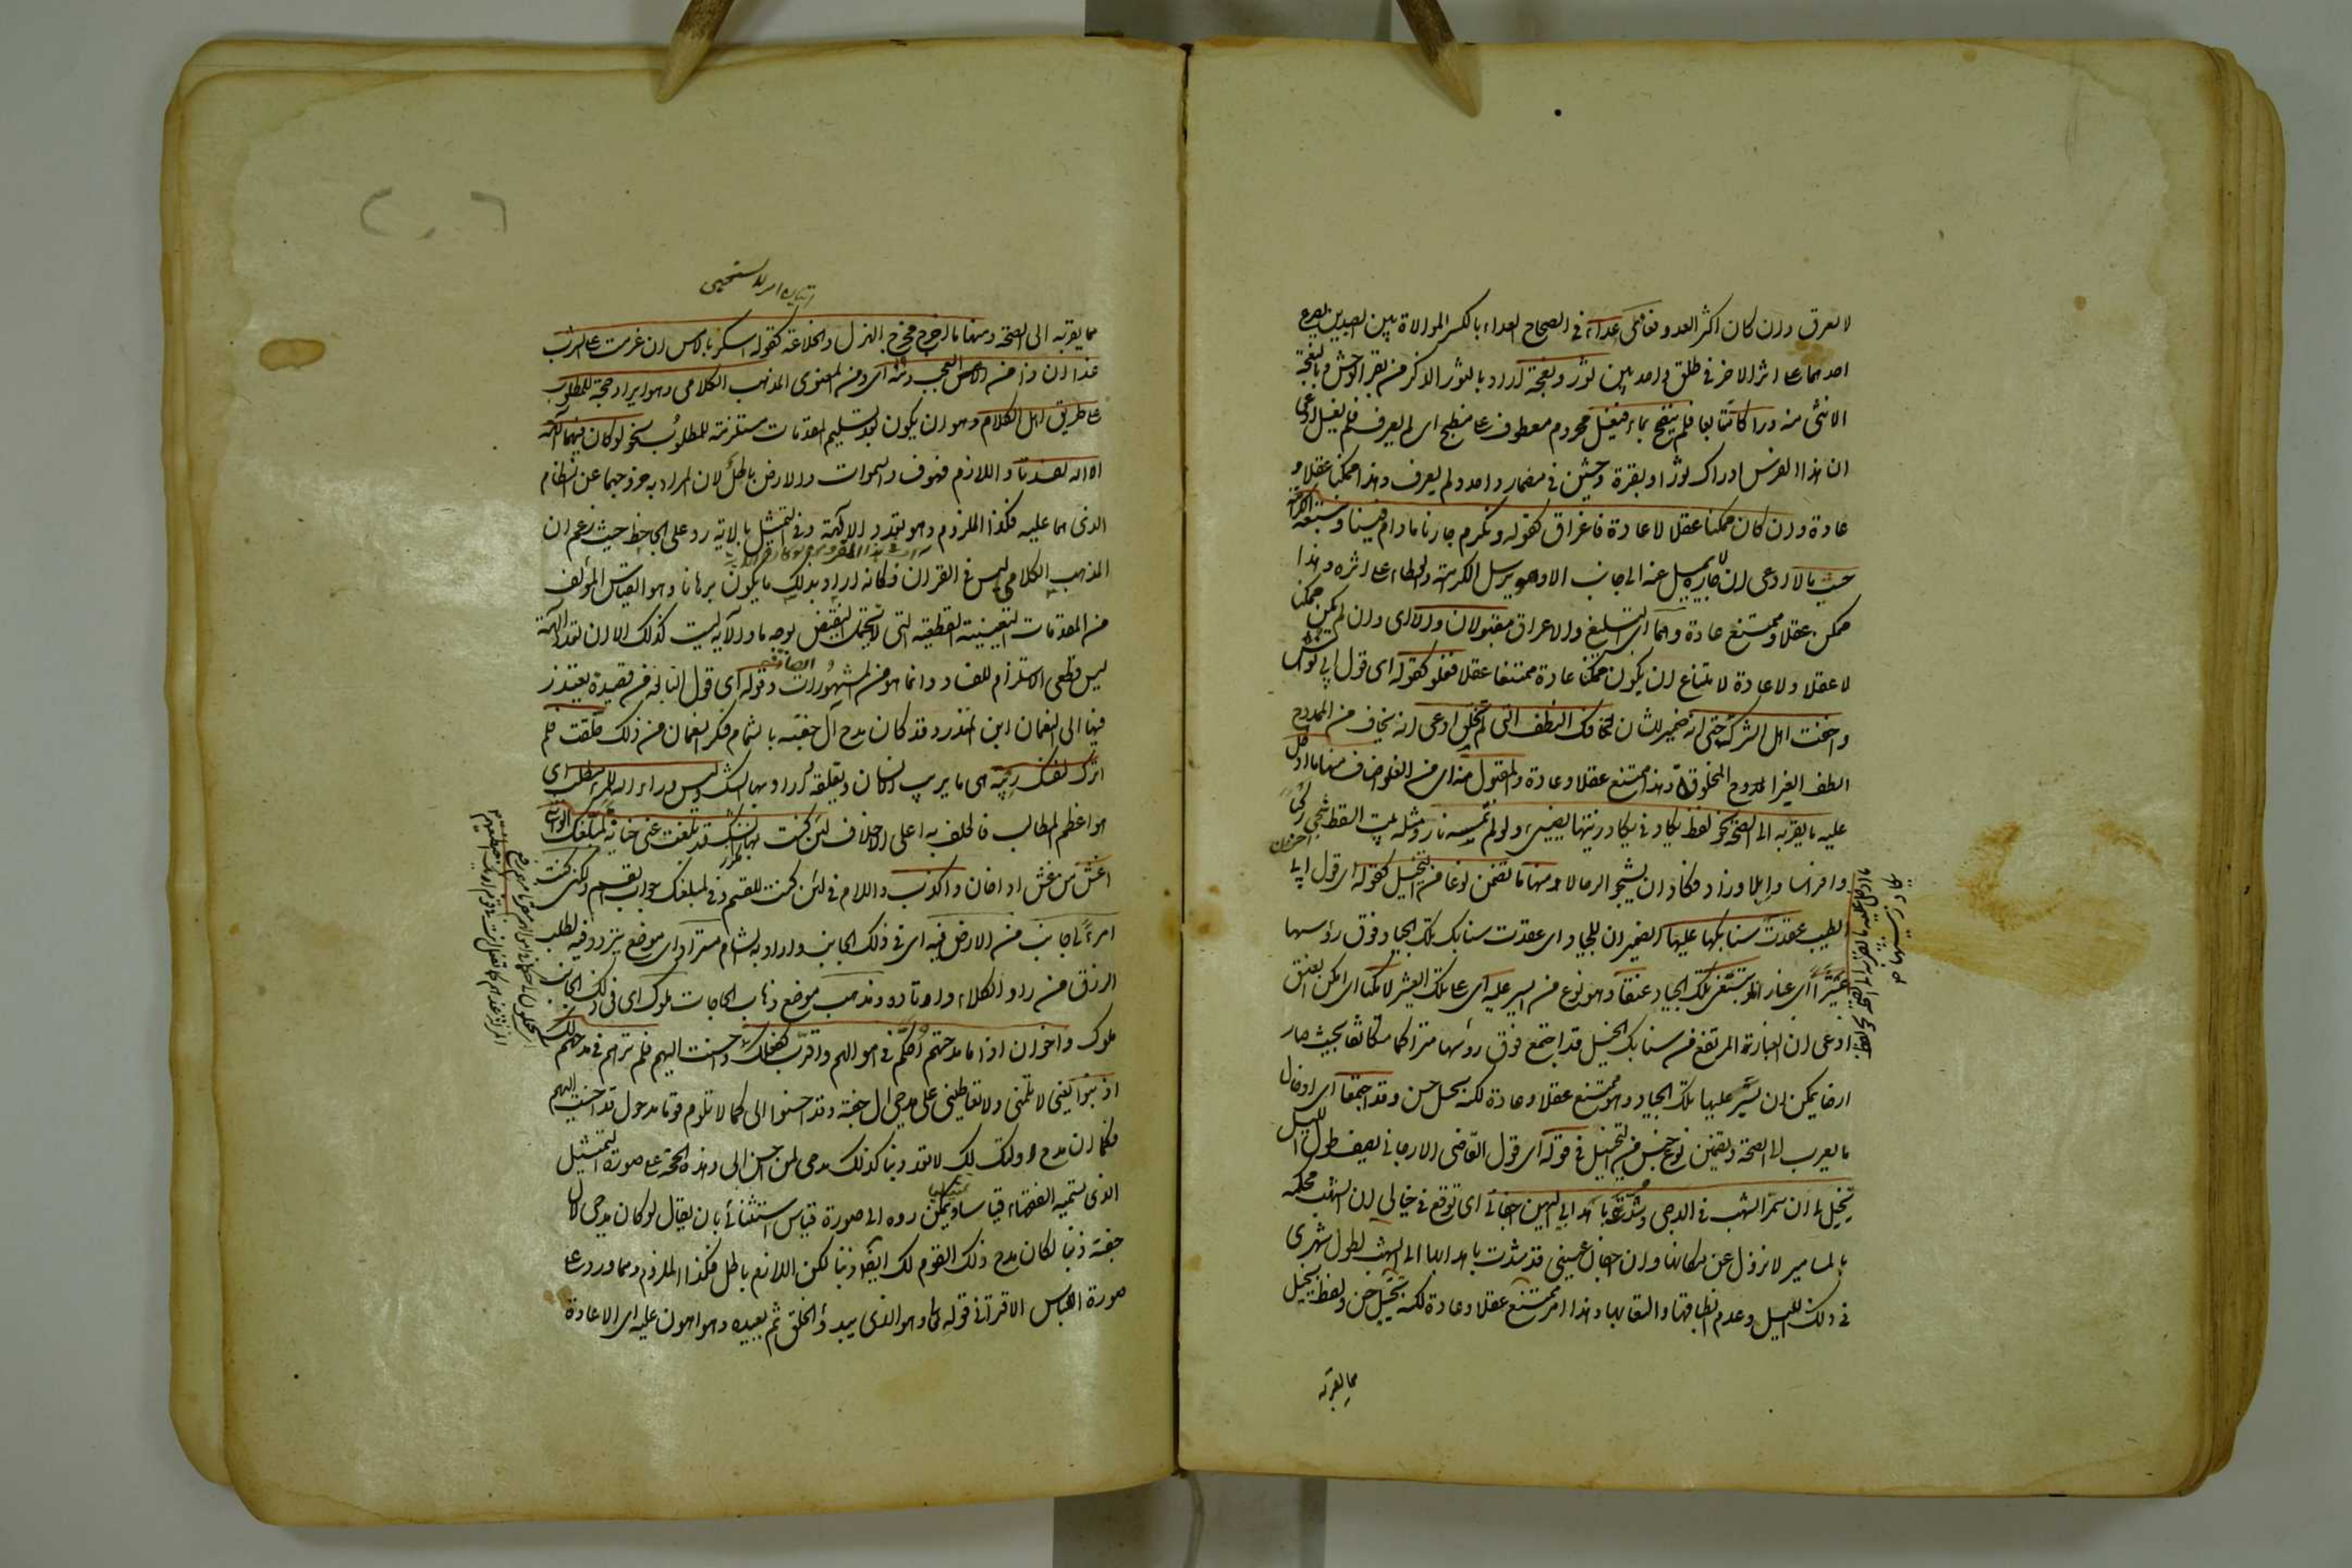 لا يعرق وان كان اكثر العدو فعادى عداء في الصحاح العداء بالكسر الموالاة بين الصيدين يصرع
احدهما على اثر الاخر في طلق واحد بين ثور ونعجة اراد بالثور الذكر من بقر الوحش وبالنعجة
الانثى منه دراكا متتابعا فلم ينضح بماء فيغسل مجزوم معطوف على ينضح اى لم يعرق فلم يغسل ادعى
ان هذا الفرس ادرك ثورا وبقرة وحشين في مضمار واحد ولم يعرق وهذا ممكن عقلا و
عادة وان كان ممكنا عقلا لا عادة فاغراق كقوله ونكرم جارنا مادام فينا ونتبعه الكرامة
حيث مالا ادعى ان جاره لا يميل عنه الى جانب الا وهو يرسل الكرامة والعطاء على اثره وهذا
ممكن عقلا وممتنع عادة وهما اى التبليغ والاغراق مقبولان والا اى وان لم يكن ممكنا
لا عقلا ولا عادة لامتناع ان يكون ممكنا عادة ممتنعا عقلا فغلو كقوله اى قول ابى نواس
واخفت اهل الشرك حتى انه ضمير الشان لتخافك النطف التى لم تخلق ادعى انه يخاف من الممدوح
النطف الغير المخلوقة وهذا ممتنع عقلا وعادة والمقبول منه اى من الغلو اصناف منها ما ادخل
عليه ما يقربه الى الصحة نحو لفظ يكاد في يكاد زيتها يضيئ ولو لم تمسسه نار ومثله بيت السقط شجى ركبا
وافراسا وابلا وزاد فكاد ان يشجو الرحالا ومنها ما تضمن نوعا من التخييل كقوله اى قول ابى
الطيب عقدت سنابكها عليها الضميران للجياد اى عقدت سنابك تلك الجياد فوق رؤسها
عثيرا اى غبارا لو تبتغى تلك الجياد عنقا وهو نوع من السير عليه اى على تلك العثير لامكنا اى امكن العنق
ادعى ان الغبار المرتفع من سنابك الخيل قد اجتمع فوق رؤسها متراكما متكاثفا بحيث صار
ارضا يمكن ان تسير عليها تلك الجياد وهو ممتنع عقلا وعادة لكنه تخيل حسن وقد اجتمعا اى ادخال
ما يقرب الى الصحة وتضمن نوع حسن من التخييل في قوله اى قول القاضى الارجانى يصف طول الليل
يخيل لى ان سمر الشهب في الدجى وشدت باهدابى اليهن اجفانى اى توقع في خيالى ان الشهب محكمة
بالمسامير لا تزول عن مكانها وان اجفان عينى قد شدت باهدابها الى الشهب لطول سهرى
في ذلك الليل وعدم انطباقها والتقائها وهذا امر ممتنع عقلا وعادة لكنه تخيل حسن ولفظ يخيل
مما يقربه
مما يقربه الى الصحة ومنها ما اخرج مخرج الهزل والخلاعة كقوله اسكر بالامس ان عزمت على الشرب
غدا ان ذا من العجب ومنه اى ومن المعنوى المذهب الكلامى وهو ايراد حجة للمطلوب
على طريق اهل الكلام وهو ان يكون بعد تسليم المقدمات مستلزمة للمطلوب نحو لو كان فيهما آلهة
الا الله لفسدتا واللازم وهو فساد السموات والارض باطل لان المراد به خروجهما عن النظام
الذى هما عليه فكذا الملزوم وهو تعدد الآلهة وفى التمثيل بالآية رد على الجاحظ حيث زعم ان
المذهب الكلامى ليس في القرآن فكانه اراد بذلك ما يكون برهانا وهو القياس المؤلف
من المقدمات اليقينية القطعية التى لا تحتمل النقيض بوجه ما والآية ليست كذلك لان تعدد الآلهة
ليس قطعى الاستلزام للفساد وانما هو من المشهورات الصادقة وقوله اى قول النابغة من قصيدة يعتذر
فيها الى النعمان ابن المنذر وقد كان مدح آل جفنة بالشام فنكر النعمان من ذلك حلفت فلم
اترك لنفسك ريبة هى ما يريب الانسان ويقلقه اراد بها الشك وليس وراء الله للمرء مطلب اى
هو اعظم المطالب فالحلف به اعلى الاحلاف لئن كنت قد بلغت عنى خيانة لمبلغك الواشى
اغش من غش اذا خان واكذب واللام في لئن كنت للقسم وفى لمبلغك جواب القسم ولكننى كنت
امرأ لى جانب من الارض فيه اى في ذلك الجانب واراد به الشام مستراد اى موضع يتردد فيه لطلب
الرزق من راد الكلاء وارتاده ومذهب موضع ذهاب الحاجات ملوك اى في ذلك الجانب
ملوك واخوان اذا ما مدحتهم احكم في اموالهم واقرب كفعلك واحسنت اليهم فلم ترهم في مدحهم لك
اذنبوا يعنى لا تلمنى ولا تعاتبنى على مدحى آل جفنة وقد احسنوا الى كما لا تلوم قوما مدحوك قد احسنت اليهم
فكما ان مدح اولئك لك لا تعد ذنبا كذلك مدحى لمن احسن الى وهذه الحجة على صورة التمثيل
الذى تسميه الفقهاء قياسا ويمكن رده الى صورة قياس استثنائى بان يقال لو كان مدحى لآل
جفنة ذنبا لكان مدح ذلك القوم لك ايضا ذنبا لكن اللازم باطل فكذا الملزوم ومما ورد على
صورة القياس الاقترانى قوله تعالى وهو الذى يبدؤ الخلق ثم يعيده وهو اهون عليه اى الاعادة